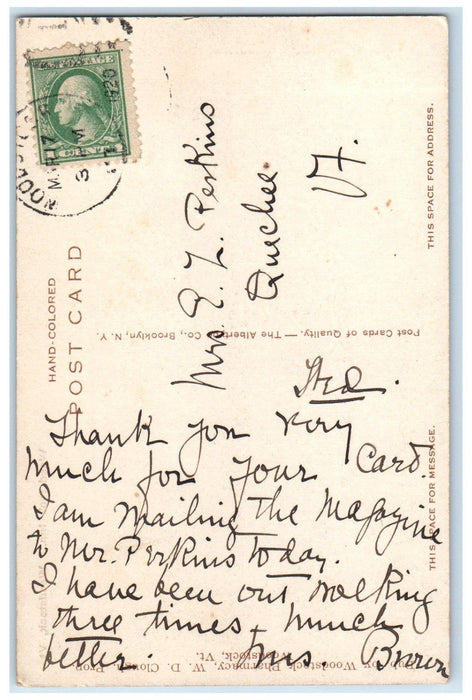 WOODSTOCK
MAR 17
3 PM
1920
VT.
HAND-COLORED
POST CARD
THIS SPACE FOR ADDRESS.
Mrs. E. L. Perkins
Quechee
Vt.
Post Cards of Quality. — The Albertype Co., Brooklyn, N. Y.
THIS SPACE FOR MESSAGE.
Wed.
Thank you very
much for your Card.
I am mailing the Magazine
to Mr. Perkins today.
I have been out walking
three times. Much
better. Mrs. Brown
Pub. by Woodstock Pharmacy, W. D. Clough, Prop.
Woodstock, Vt.